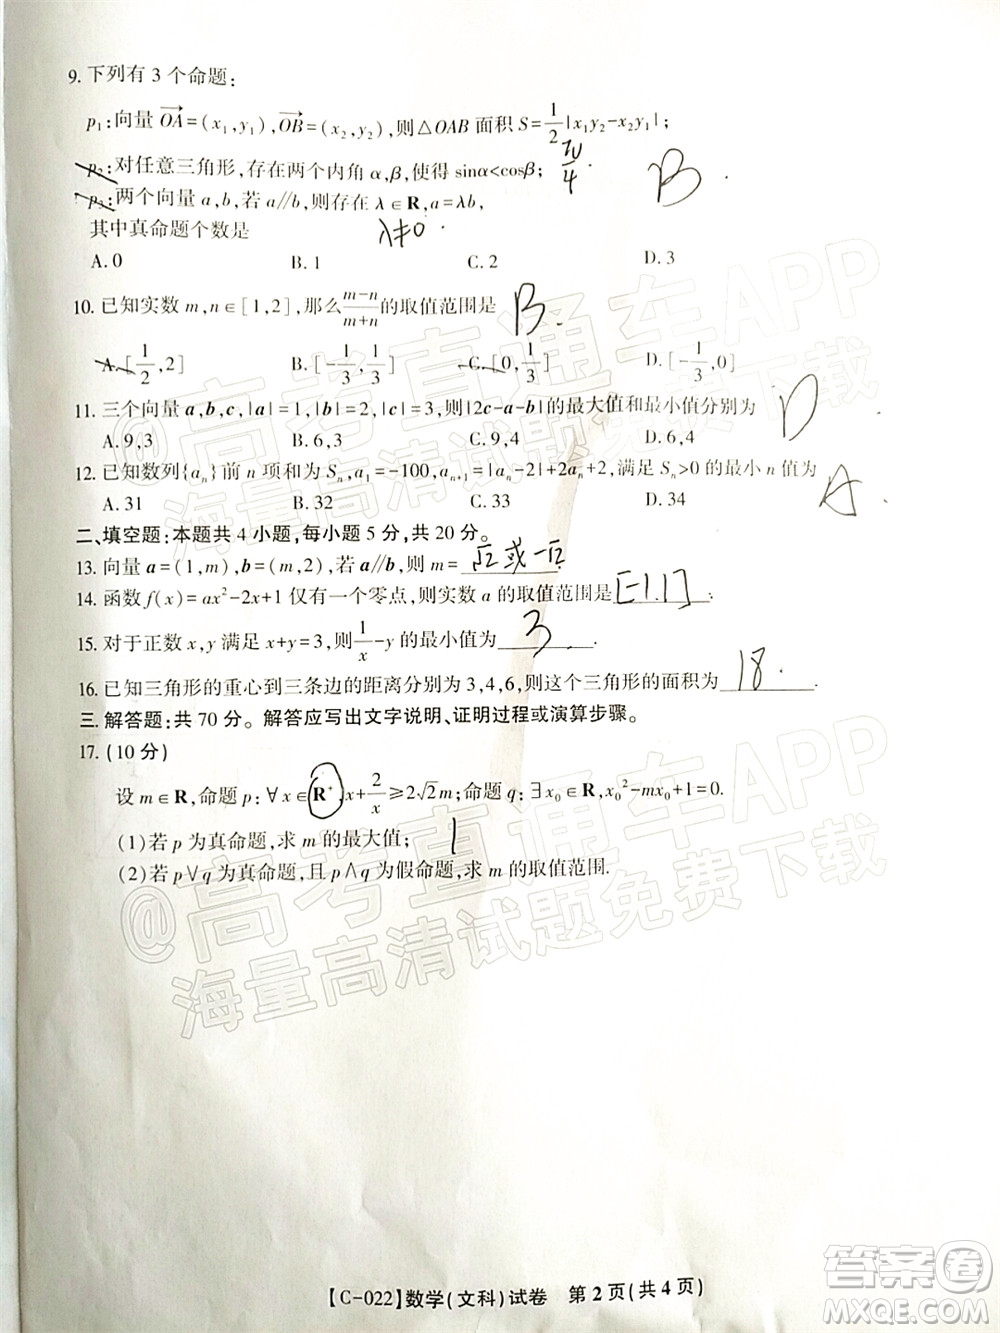 9. 下列有 3 个命题:
p₁:向量 OA→=(x₁,y₁),OB→=(x₂,y₂),则△OAB 面积 S=1/2|x₁y₂-x₂y₁|;
p₂:对任意三角形,存在两个内角 α,β,使得 sinα<cosβ; π/4 B
p₃:两个向量 a,b,若 a∥b,则存在 λ∈R,a=λb,
其中真命题个数是 λ≠0
A. 0 B. 1 C. 2 D. 3
10. 已知实数 m,n∈[1,2],那么 (m-n)/(m+n) 的取值范围是 B.
A. [1/2,2] B. [-1/3,1/3] C. [0,1/3] D. [-1/3,0]
11. 三个向量 a,b,c,|a|=1,|b|=2,|c|=3,则|2c-a-b|的最大值和最小值分别为 D
A. 9,3 B. 6,3 C. 9,4 D. 6,4
12. 已知数列{aₙ}前 n 项和为 Sₙ,a₁=-100,aₙ₊₁=|aₙ-2|+2aₙ+2,满足 Sₙ>0 的最小 n 值为 A.
A. 31 B. 32 C. 33 D. 34
二、填空题:本题共 4 小题,每小题 5 分,共 20 分。
13. 向量 a=(1,m),b=(m,2),若 a∥b,则 m= √2或-√2.
14. 函数 f(x)=ax²-2x+1 仅有一个零点,则实数 a 的取值范围是 [-1.1].
15. 对于正数 x,y 满足 x+y=3,则 1/x-y 的最小值为 3.
16. 已知三角形的重心到三条边的距离分别为 3,4,6,则这个三角形的面积为 18.
三、解答题:共 70 分。解答应写出文字说明、证明过程或演算步骤。
17. (10 分)
设 m∈R,命题 p:∀x∈R⁺,x+2/x≥2√2m;命题 q:∃x₀∈R,x₀²-mx₀+1=0.
(1)若 p 为真命题,求 m 的最大值; 1
(2)若 p∨q 为真命题,且 p∧q 为假命题,求 m 的取值范围.
@高考直通车APP
海量高清试题免费下载
@高考直通车APP
海量高清试题免费下载
【C-022】数学(文科)试卷 第 2 页(共 4 页)
答案圈
MXQE.COM